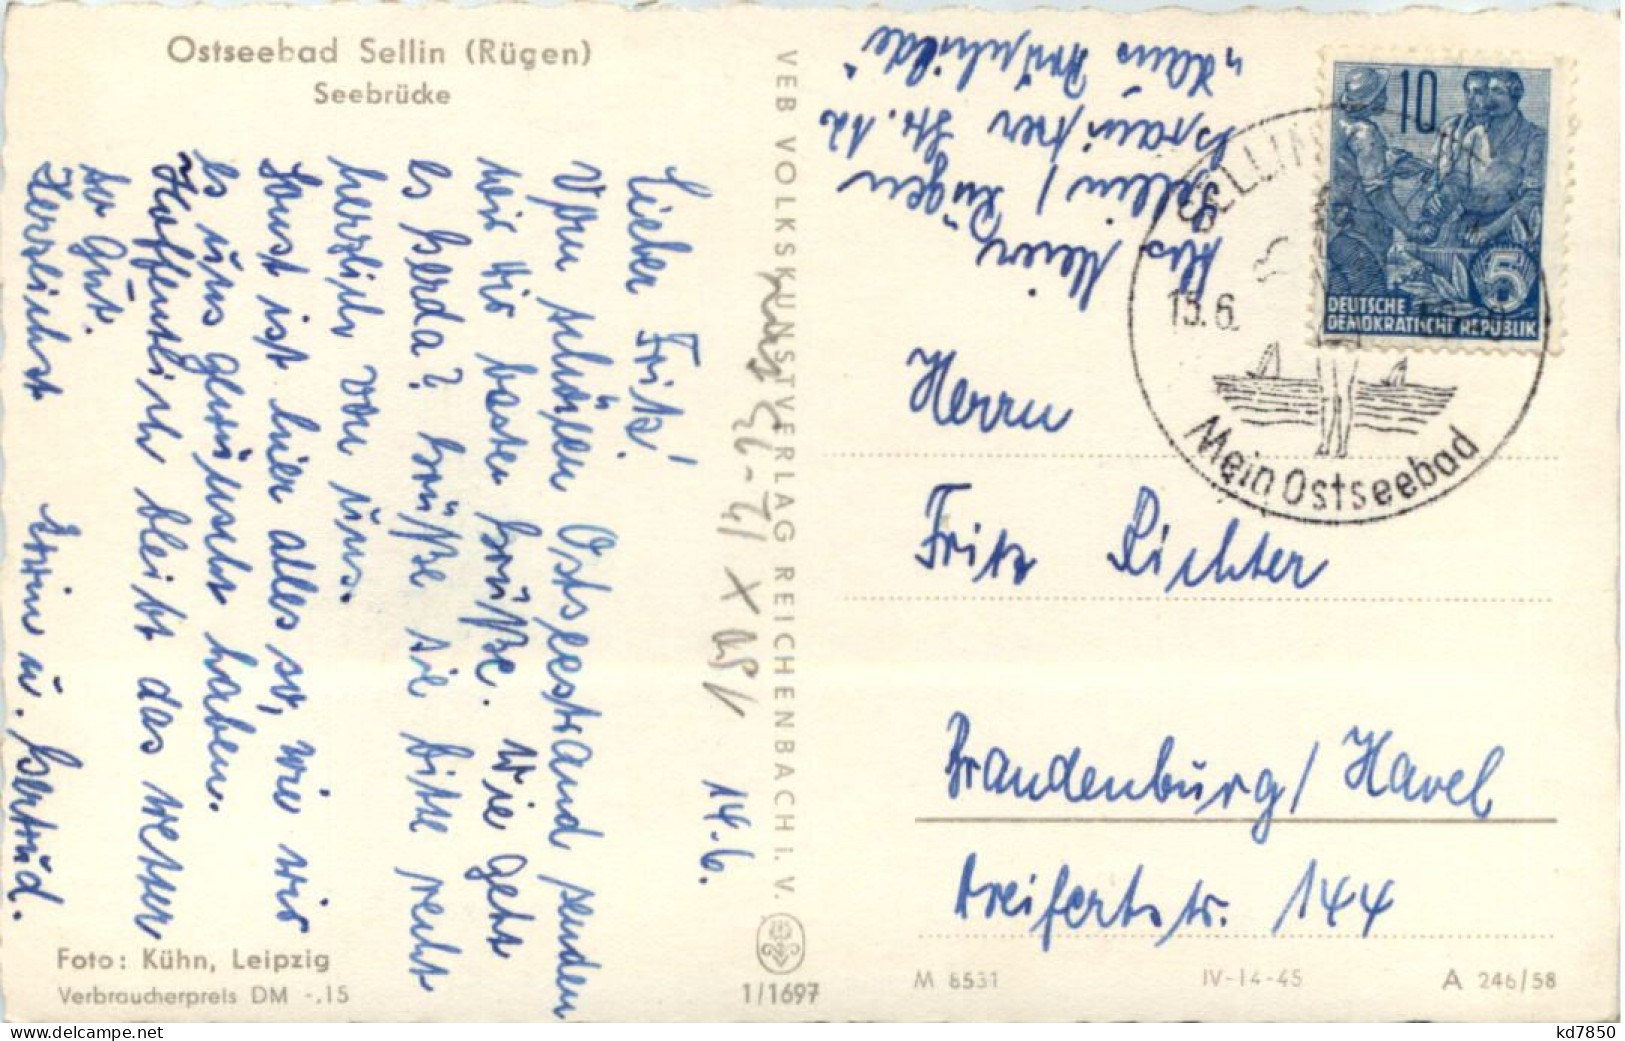 Ostseebad Sellin (Rügen)
Seebrücke
14.6.
Lieber Fritz!
Vom schönen Ostseestrand senden
wir Dir besten Grüße. Wie geht
es Gerda? Grüße sie bitte recht
herzlich von uns.
Sonst ist hier alles so, wie wir
es uns gewünscht haben.
Hoffentlich bleibt das Wetter
so gut.
Herzlichst Erwin u. Gertrud.
Foto: Kühn, Leipzig
Verbraucherpreis DM -.15
VEB VOLKSKUNSTVERLAG REICHENBACH i. V.
1/1697
Abs Meier
Sellin / Rügen
Str. 12
"Haus
10
5
DEUTSCHE
DEMOKRATISCHE REPUBLIK
SELLIN
15.6.
Mein Ostseebad
Herrn
Fritz Richter
Brandenburg / Havel
144
M 6531
IV-14-45
A 246/58
kd7850